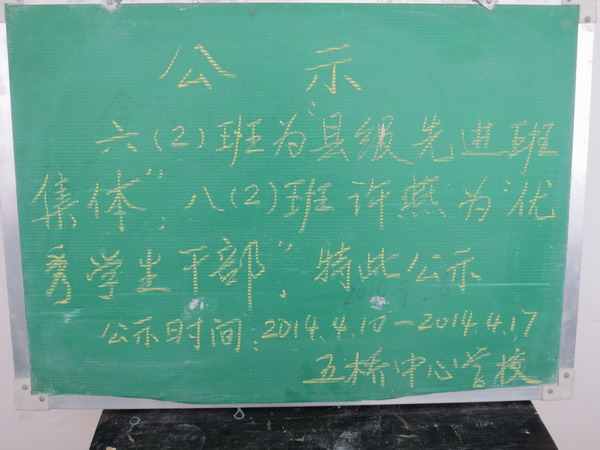 公 示
六(2)班为“县级先进班
集体”；八(2)班许燕为“优
秀学生干部”。特此公示
公示时间：2014.4.10—2014.4.17
五桥中心学校